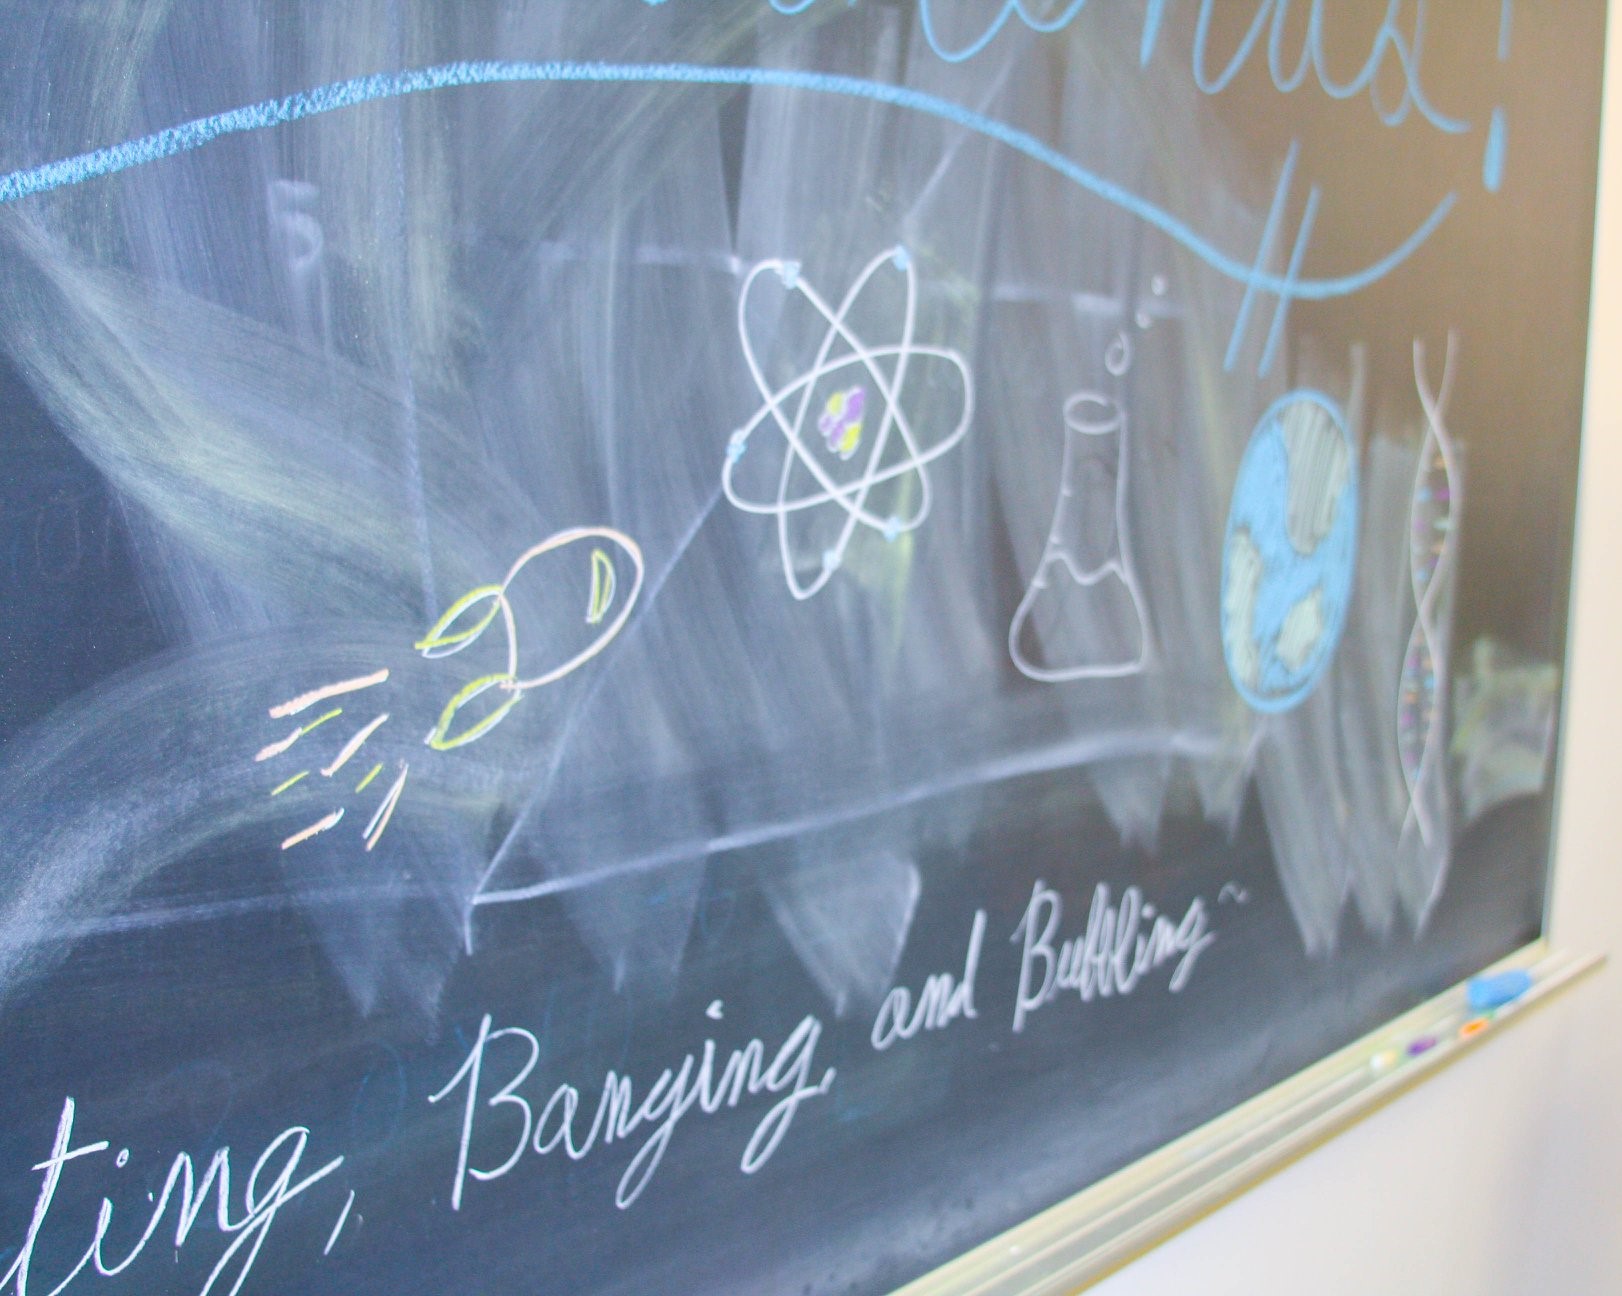 5
ting, Banging, and Bubbling~